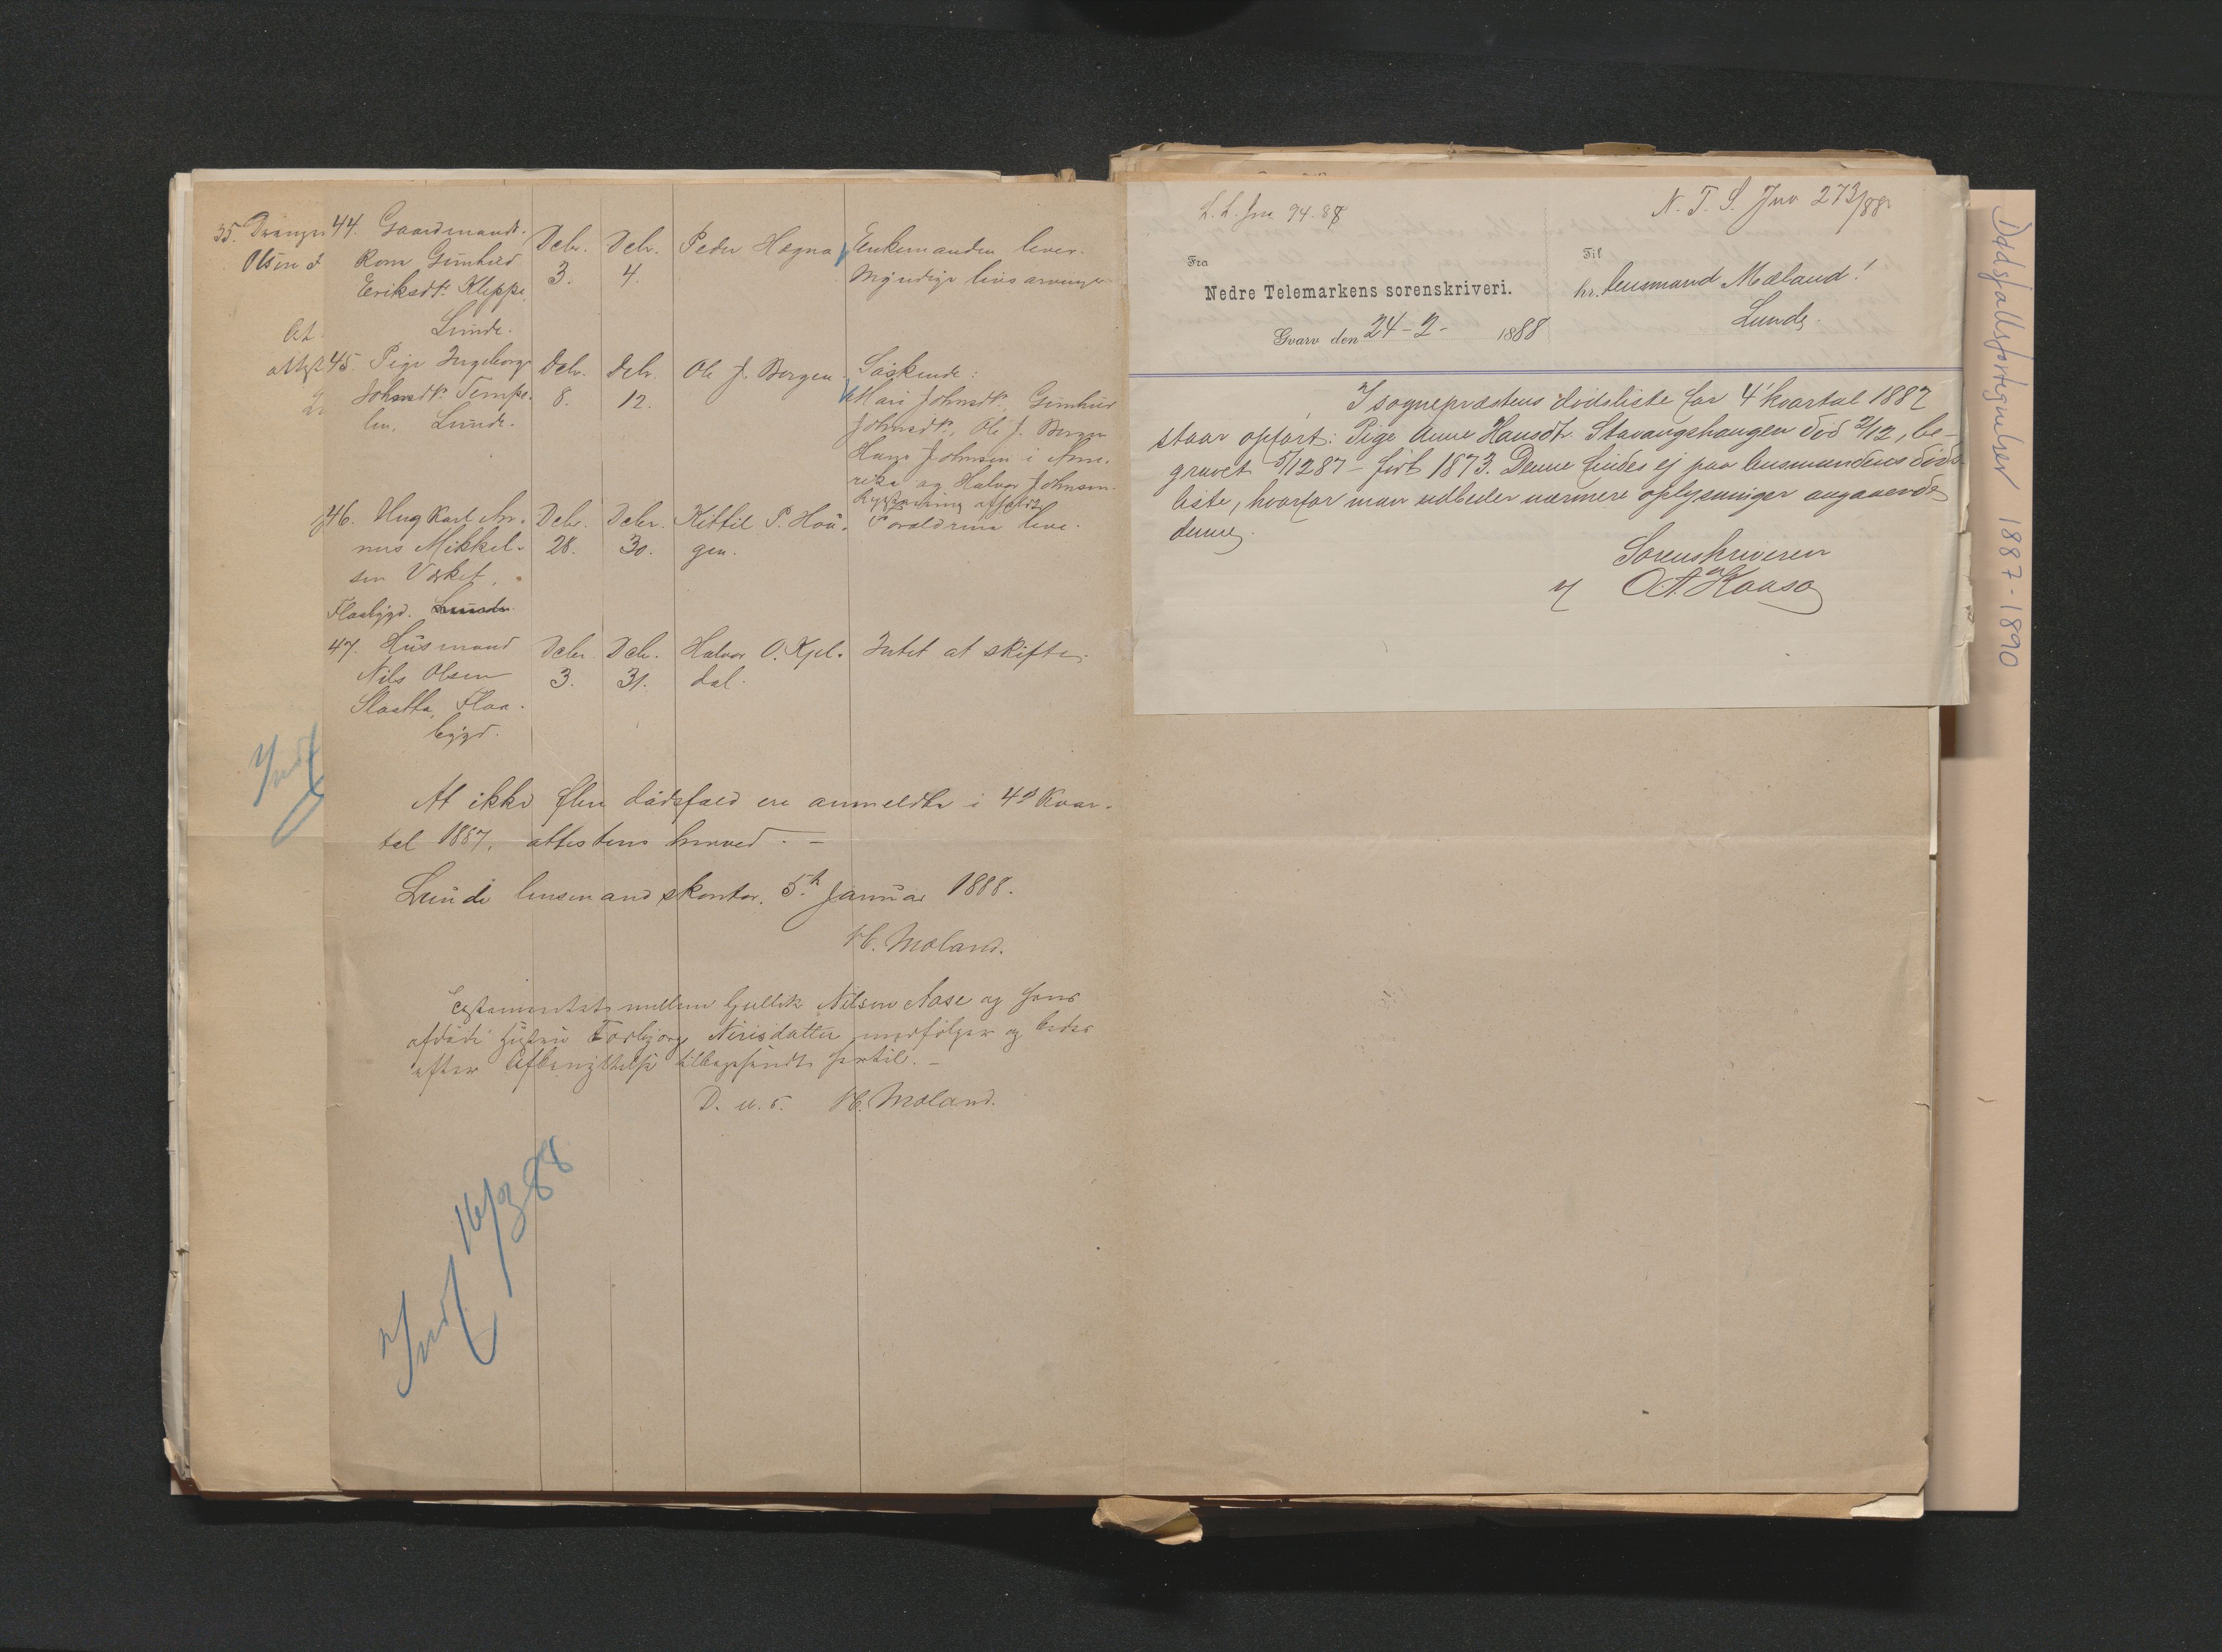 35. Drængen
Olsen
At
attest
44. Gaardmands-
kone Gunhild
Eriksdtr. Kleppe,
Lunde.
Debr.
3.
Debr.
4.
Peder Hegna
Enkemanden lever.
Myndige livsarvinger
45. Pige Ingeborg
Johnsdtr. Tempe-
len, Lunde.
Debr.
8.
Debr.
12.
Ole J. Bergen
Søskende:
Mari Johnsdtr., Gunhild
Johnsdtr., Ole J. Bergen
Hans Johnsen i Ame-
rika og Halvor Johnsen.
46. Ung Karl An-
nus Mikkel-
sen Værket,
Flaabygd. Lunde.
Debr.
28.
Debr.
30.
Kittil P. Hou-
gen.
Forældrene leve.
47. Husmand
Nils Olsen
Slaatta, Flaa-
bygd.
Debr.
3.
Debr.
31.
Halvor O. Kjel-
dal.
Intet at skifte.
At ikke flere dødsfald ere anmeldte i 4de Kvar-
tal 1887, attesteres herved. —
Lunde lensmandskontor, 5te Januar 1888.
H. Moland.
Testamentet mellem Gullik Nilsen Aase og hans
afdøde Hustru Torbjørg Nirisdatter medfølger og bedes
efter Afbenyttelse tilbagesendt hertil. —
D. u. s. H. Moland.
Indf
Indf 16/3 88
L. L. Jno 94. 88
N. T. S. Jno 273/88
Fra
Nedre Telemarkens sorenskriveri.
Gvarv den 24-2- 1888
Til
hr. lensmand Mæland!
Lunde.
I sogneprestens dødsliste for 4' kvartal 1887
staar opført: Pige Anne Hansdtr. Stavangshaugen død 2/12, be-
gravet 5/12 87 - født 1873. Denne findes ej paa lensmandens døds-
liste, hvorfor man udbeder nærmere oplysninger angaaende
denne.
Sorenskriveren
O. A. Kaasa
Dødsfallsfortegnelser 1887-1890